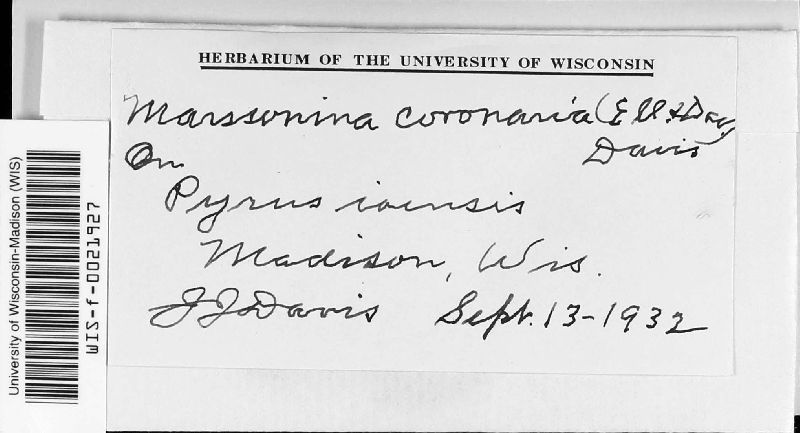 HERBARIUM OF THE UNIVERSITY OF WISCONSIN
Marssonina coronaria (Ell. & Dav.)
Davis
On
Pyrus ioensis
Madison, Wis.
JJDavis Sept. 13-1932
University of Wisconsin-Madison (WIS)
WIS-f-0021927